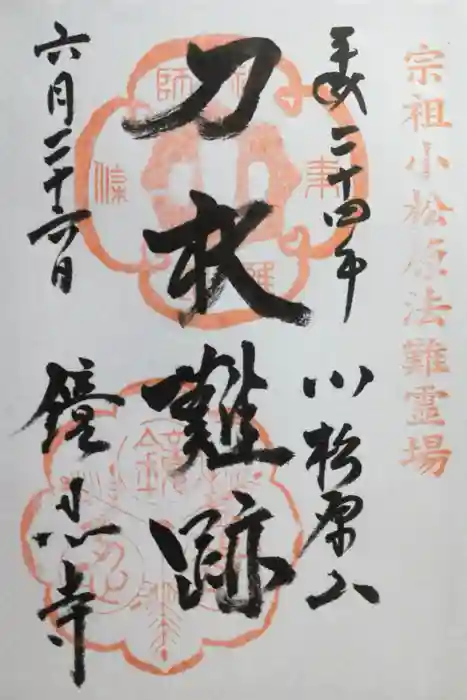 宗祖小松原法難霊場
平成二十四年 小松原山
刀杖難跡
六月二十六日 鏡忍寺